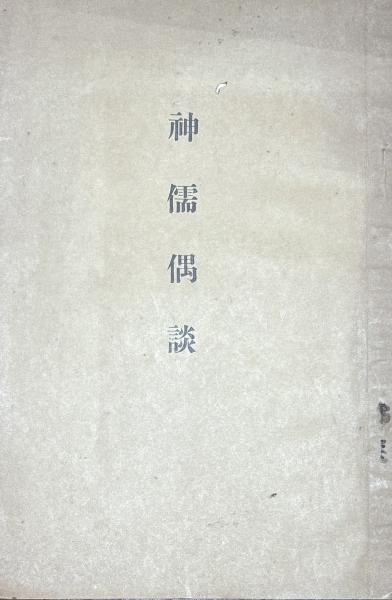 神儒偶談